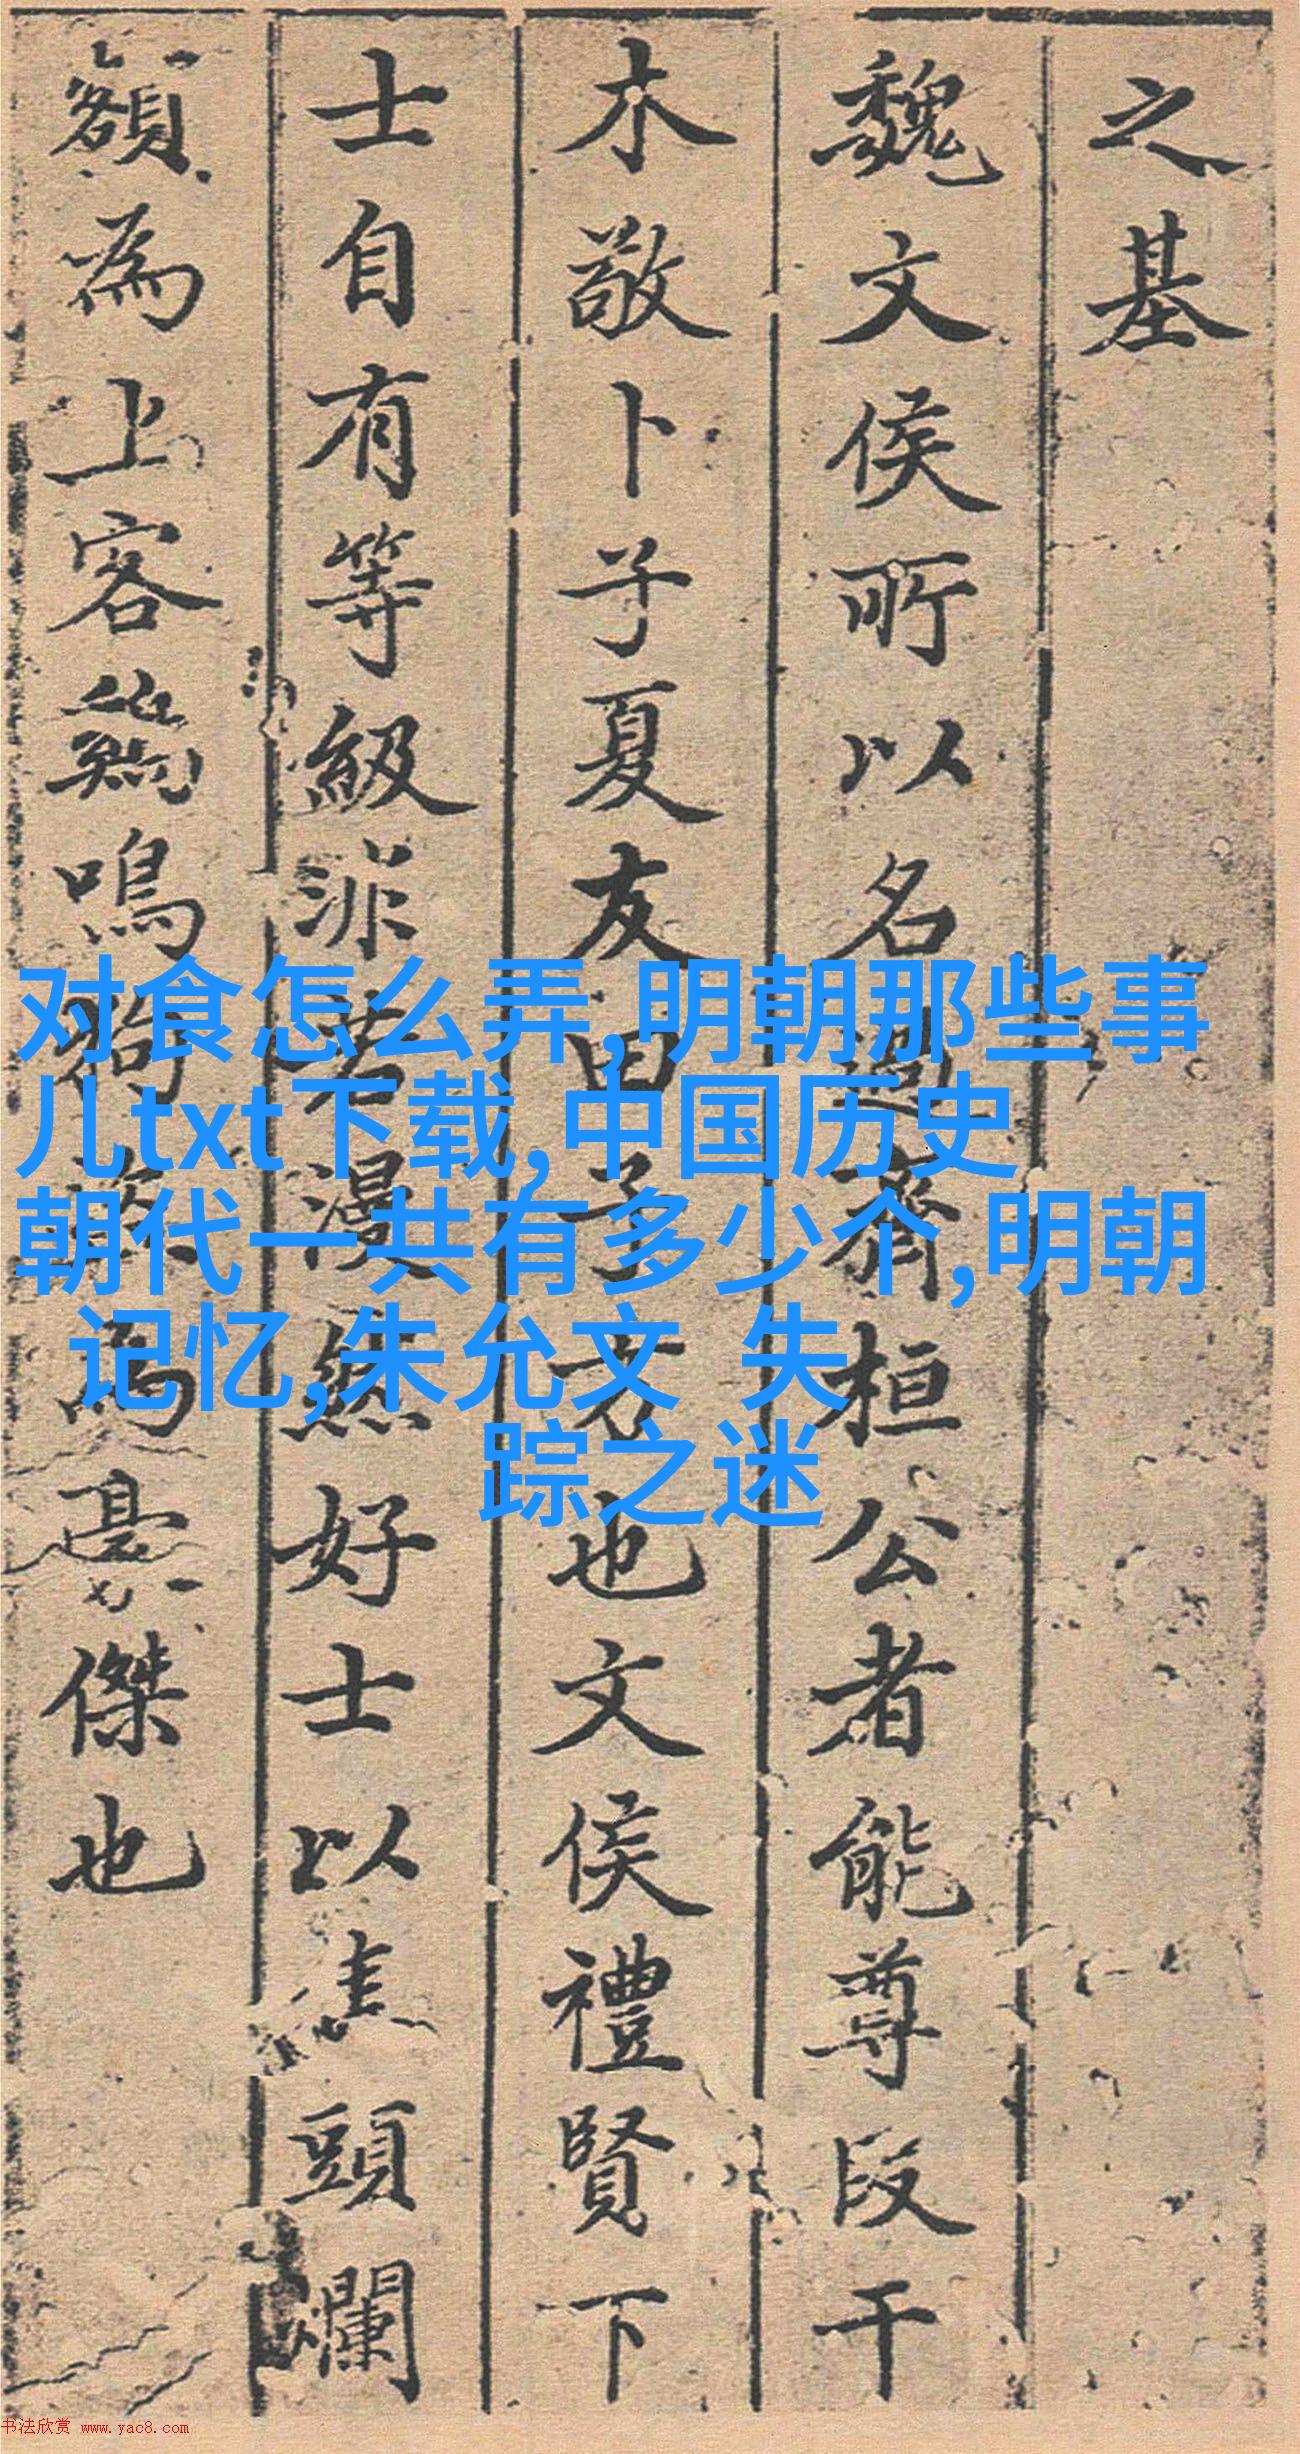 之基
魏文侯所以名過齊桓公者能尊段干
木敬卜子夏友田子方也文侯禮賢下
士自有等級非若漫然好士以焦頭爛
額為上客鷄鳴狗為豪傑也
对食怎么弄,明朝那些事
儿txt下载,中国历史
朝代一共有多少个,明朝
记忆,朱允文 失
踪之迷
书法欣赏 www.yac8.com